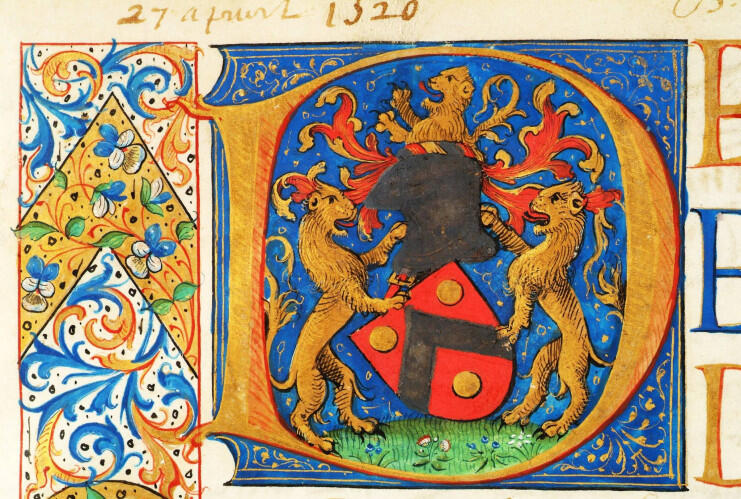 27 apuril 1520
D E
E
D